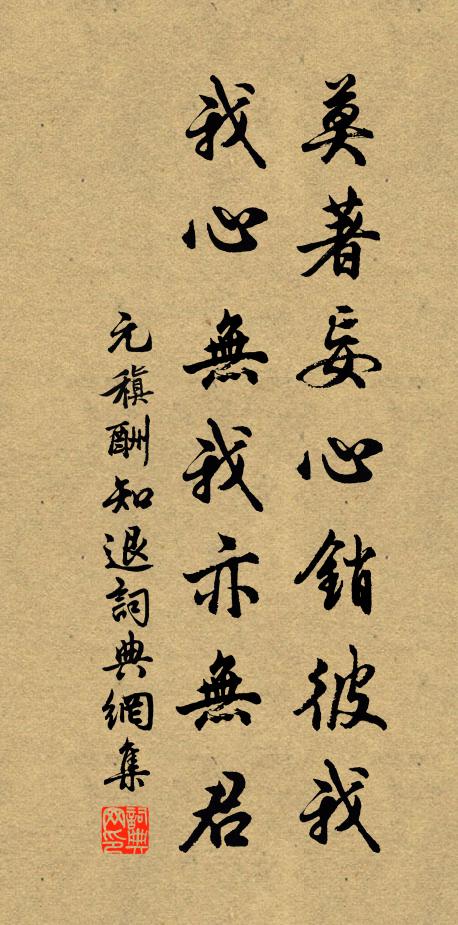 莫著妄心銷彼我
我心無我亦無君
元稹酬知退詞典網集
詞典网印